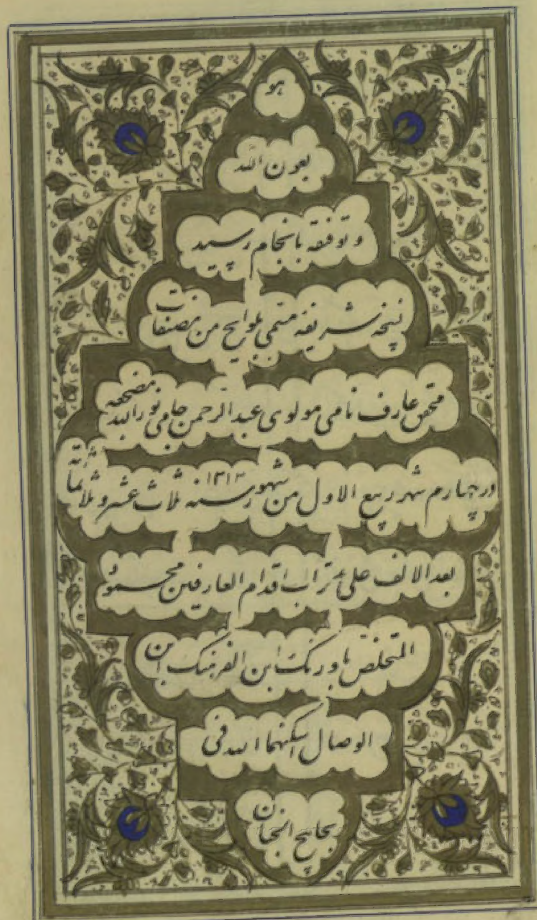 هو
بعون الله
و توفقه بانجام رسید
نسخه شریفه مسمی بلوایح من مصنفات
محقق عارف نامی مولوی عبدالرحمن جامی نور الله مضجعه
در چهارم شهر ربیع الاول من شهور سنه ۱۳۱۳ ثلاث عشر و ثلاثمائة
بعد الالف علی ید تراب اقدام العارفین محمود
المتخلص باورنک ابن الفرهنک ابن
الوصال اسکنهما الله فی
بحابح الجنان